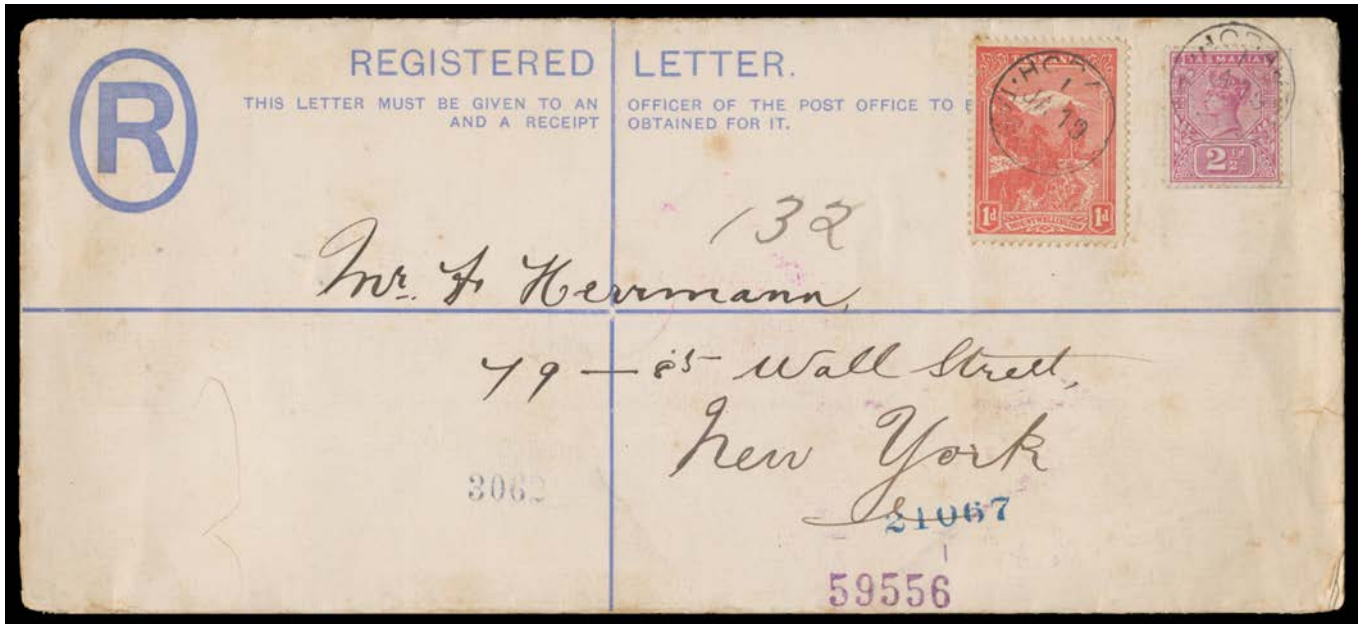 R
REGISTERED LETTER.
THIS LETTER MUST BE GIVEN TO AN OFFICER OF THE POST OFFICE TO
AND A RECEIPT OBTAINED FOR IT.
TASMANIA
2½d
1d 1d
MOUNT WELLINGTON
132
Mr. F Herrmann,
79 — 85 Wall Street,
New York
3062
21067
59556